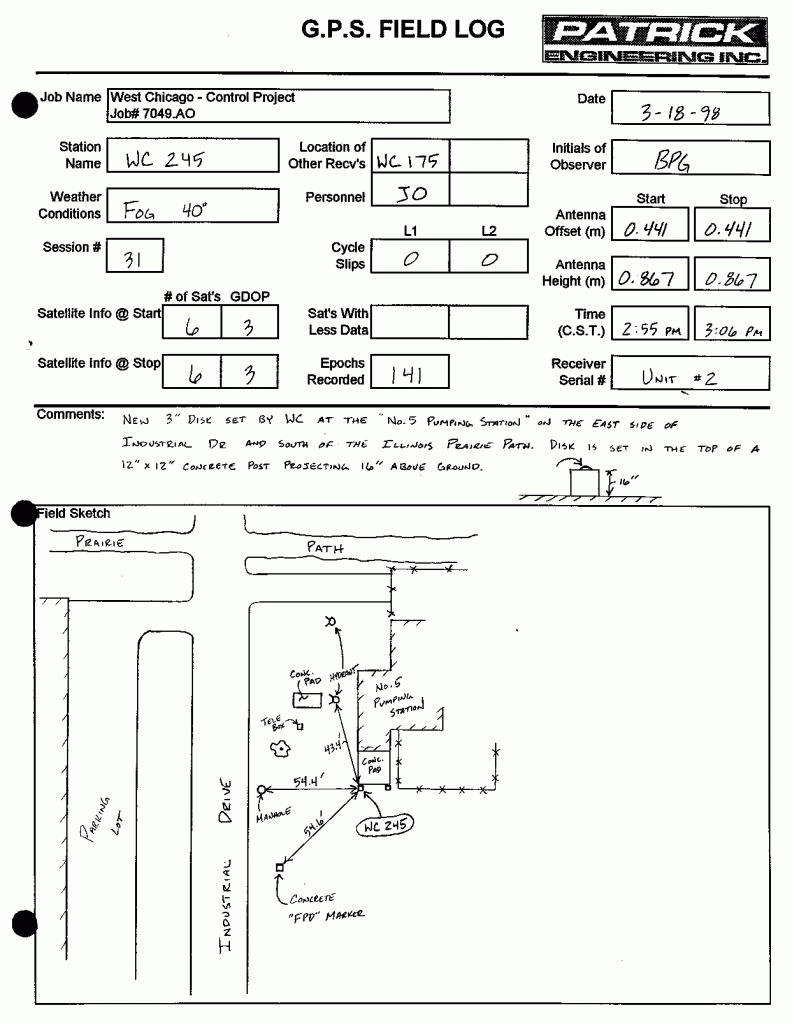 G.P.S. FIELD LOG
PATRICK
ENGINEERING INC.
Job Name
West Chicago - Control Project
Job# 7049.AO
Date
3-18-98
Station Name
WC 245
Location of Other Recv's
WC 175
Initials of Observer
BPG
Weather Conditions
FOG 40°
Personnel
JO
Start Stop
Antenna Offset (m)
0.441 0.441
Session #
31
L1 L2
Cycle Slips
0 0
Antenna Height (m)
0.867 0.867
# of Sat's GDOP
Satellite Info @ Start
6 3
Sat's With Less Data
Time (C.S.T.)
2:55 PM 3:06 PM
Satellite Info @ Stop
6 3
Epochs Recorded
141
Receiver Serial #
UNIT #2
Comments:
NEW 3" DISK SET BY WC AT THE "NO.5 PUMPING STATION" ON THE EAST SIDE OF
INDUSTRIAL DR AND SOUTH OF THE ILLINOIS PRAIRIE PATH. DISK IS SET IN THE TOP OF A
12" X 12" CONCRETE POST PROJECTING 16" ABOVE GROUND.
16"
Field Sketch
PRAIRIE PATH
CONC. PAD
HYDRANT
NO.5 PUMPING STATION
TELE BOX
43.4'
CONC. PAD
54.4'
MANHOLE
54.6'
WC 245
PARKING LOT
INDUSTRIAL DRIVE
CONCRETE
"FPD" MARKER